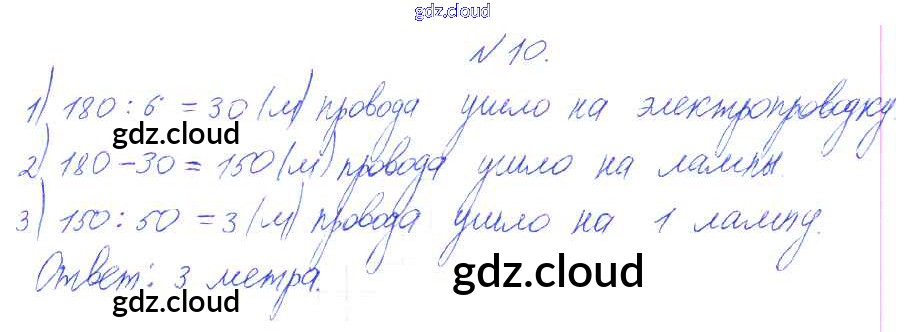 gdz.cloud
№ 10.
1) 180 : 6 = 30 (м) провода ушло на электропроводку.
gdz.cloud
2) 180 - 30 = 150 (м) провода ушло на лампы.
3) 150 : 50 = 3 (м) провода ушло на 1 лампу.
Ответ: 3 метра.
gdz.cloud
gdz.cloud